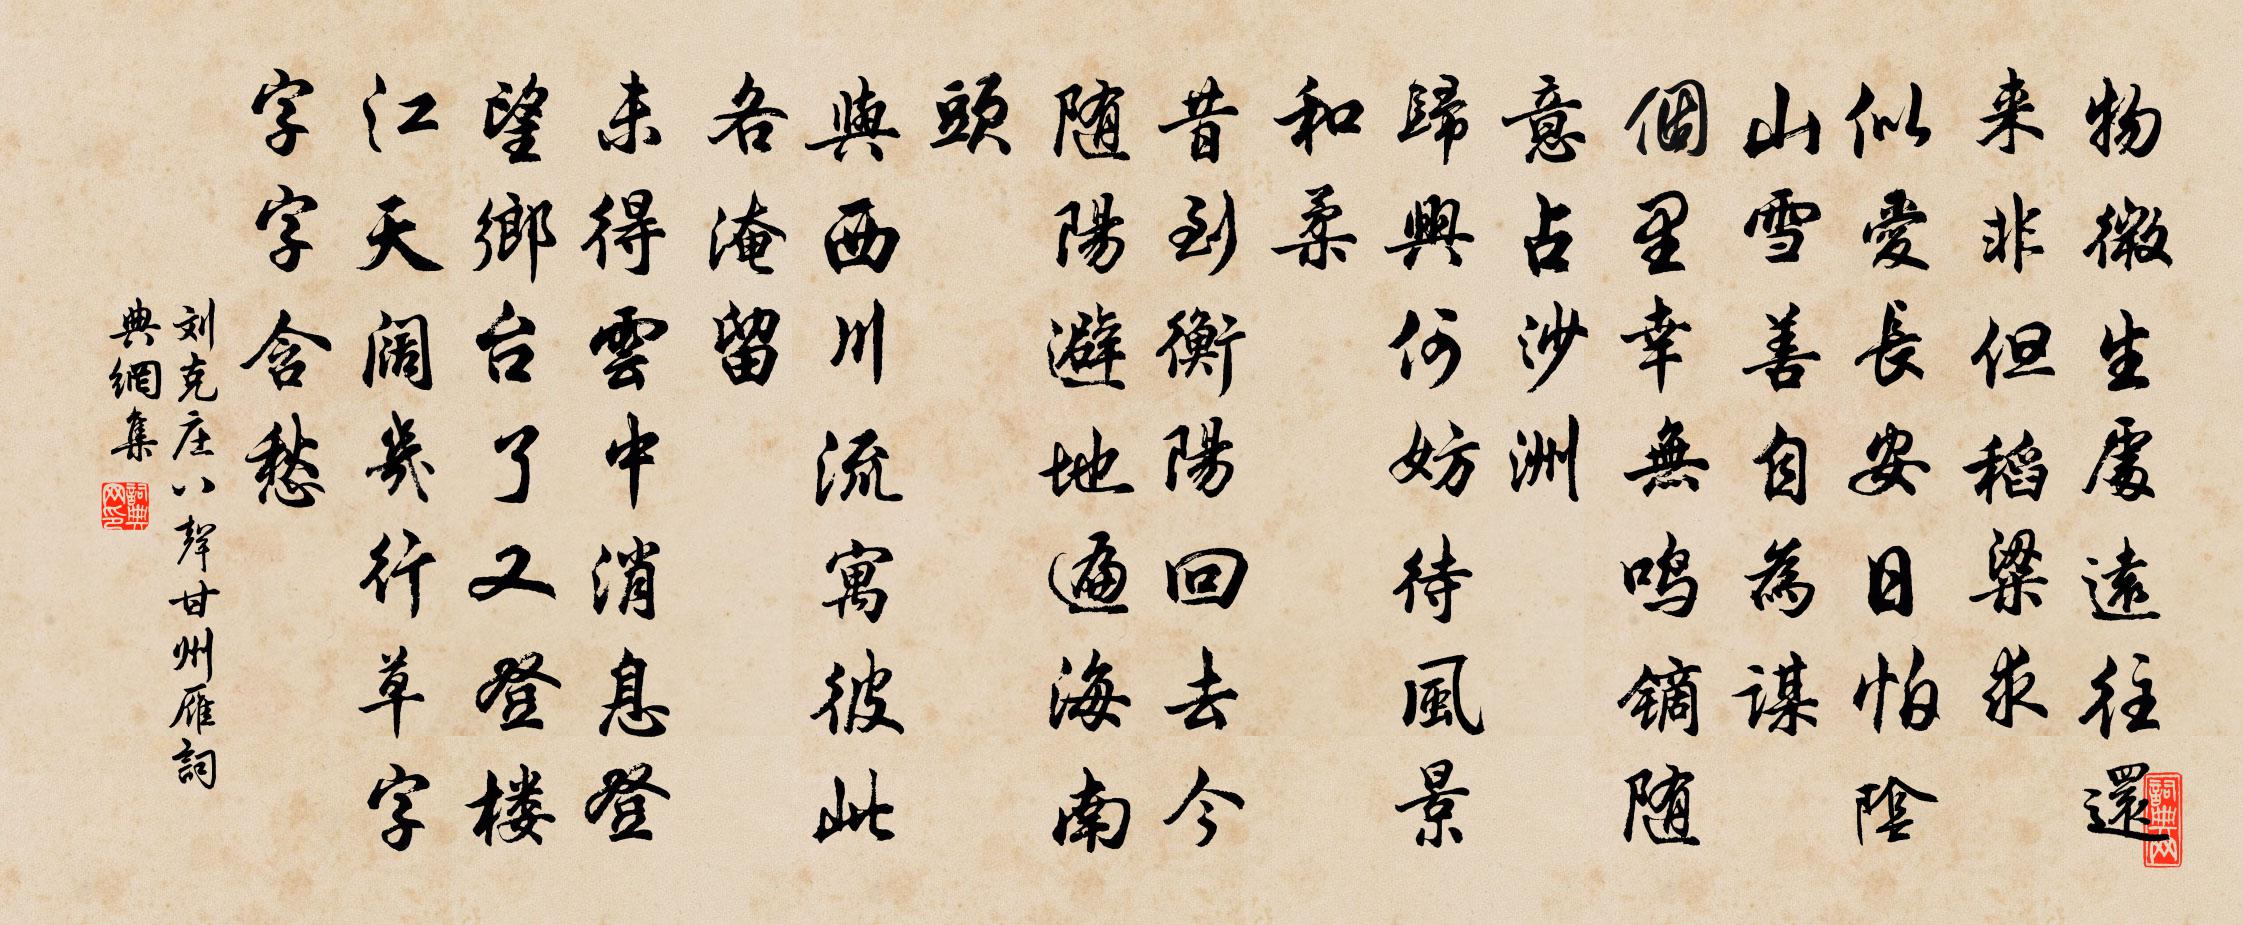 物微生處遠往還
来非但稻粱求
似愛長安日怕陰
山雪善自為謀
個里幸無鳴鏑随
意占沙洲
歸興何妨待風景
和柔
昔到衡陽回去今
随陽避地遍海南
頭
與西川流寓彼此
各淹留
未得雲中消息登
望鄉台了又登楼
江天闊幾行草字
字字含愁
刘克庄八聲甘州雁詞
典網集
詞典网
詞典网印